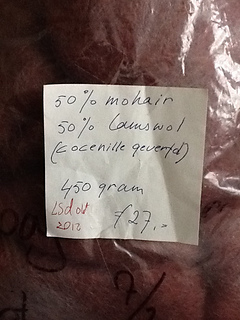 50% mohair
50% Lamswol
(cocenille geverfd)
450 gram
2012
f27,=
7/